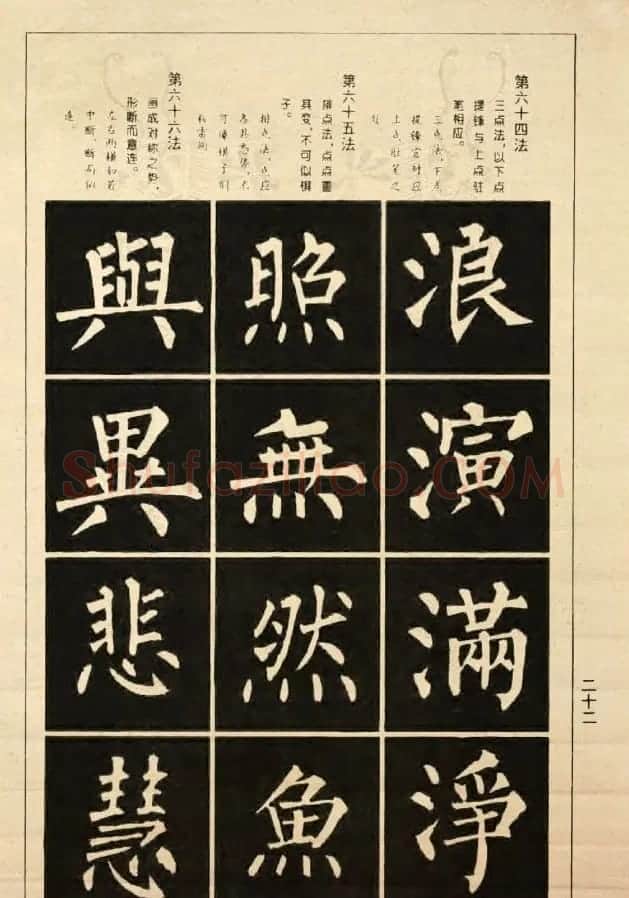 第六十四法
三点法，以下点
提锋与上点驻
笔相应。
三点法，下点
提锋应对应
上点驻笔之
处
第六十五法
排点法，点点
具变，不可似棋
子。
排点法，点应
各具态势，不
可像棋子
雷同
第六十六法
画成对称之势，
形断而意连。
左右两横如若
中断，断而似
连。
浪演滿淨
照無然魚
與異悲慧
二十二
Shufaziliao.COM